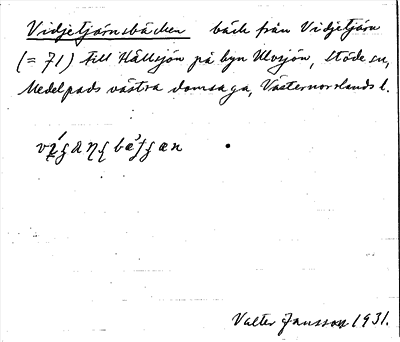 Vidjetjärnsbäcken bäck från Vidjetjärn
(= 71) till Hållsjön på byn Ulvsjön, Stöde sn,
Medelpads västra domsaga, Västernorrlands l.
Valter Jansson 1931.